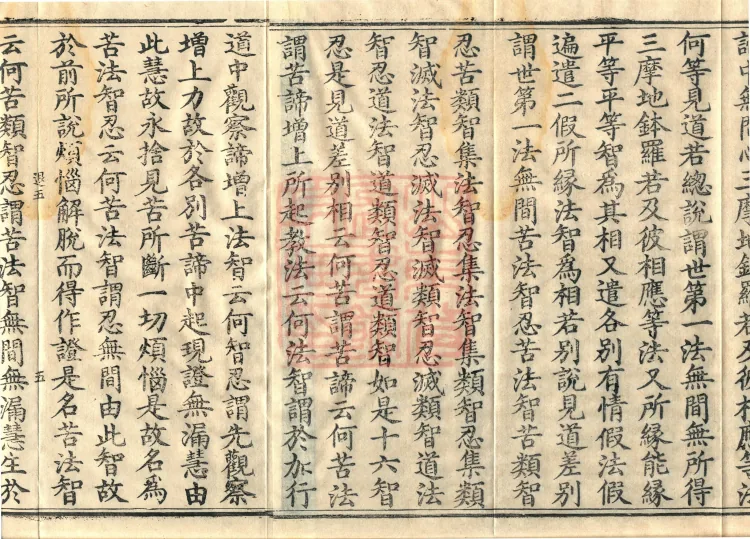 中無間心三摩地鉢羅若及彼相應等法
何等見道若總說謂世第一法無間無所得
三摩地鉢羅若及彼相應等法又所緣能緣
平等平等智爲其相又遣各別有情假法假
遍遣二假所緣法智爲相若別說見道差別
謂世第一法無間苦法智忍苦法智苦類智
忍苦類智集法智忍集法智集類智忍集類
智滅法智忍滅法智滅類智忍滅類智道法
智忍道法智道類智忍道類智如是十六智
忍是見道差別相云何苦謂苦諦云何苦法
謂苦諦增上所起教法云何法智謂於加行
道中觀察諦增上法智云何智忍謂先觀察
增上力故於各別苦諦中起現證無漏慧由
此慧故永捨見苦所斷一切煩惱是故名爲
苦法智忍云何苦法智謂忍無間由此智故
於前所說煩惱解脫而得作證是名苦法智
五 五
云何苦類智忍謂苦法智無間無漏慧生於